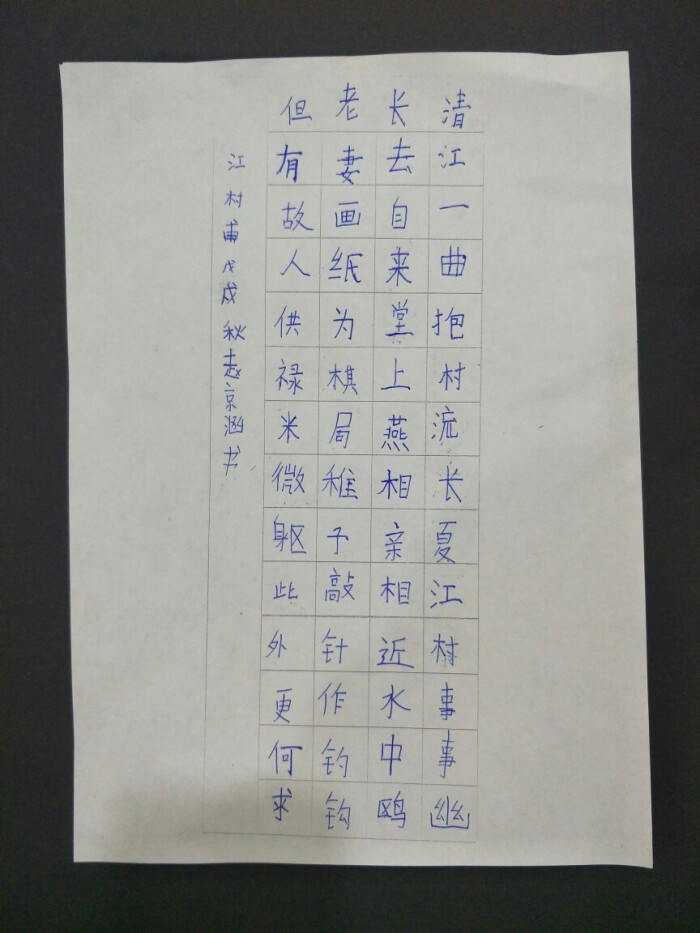 清江一曲抱村流长夏江村事事幽
长去自来堂上燕相亲相近水中鸥
老妻画纸为棋局稚子敲针作钓钩
但有故人供禄米微躯此外更何求
江村甫戊戌秋赵京涵书